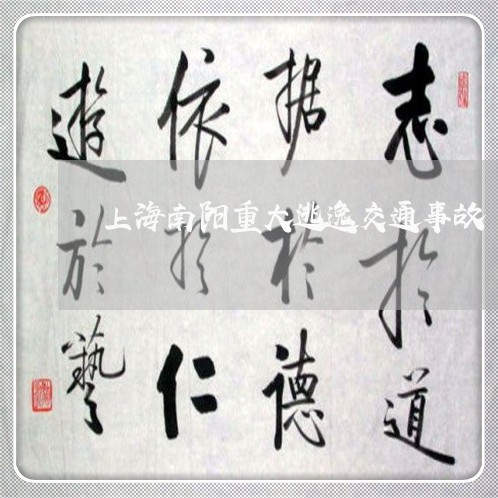 志於道
据於德
依於仁
遊於藝
上海南阳重大逃逸交通事故